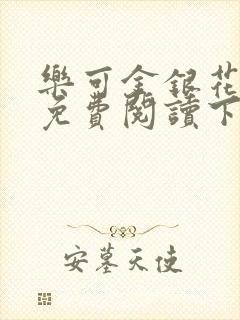 樂可金銀花
免費閱讀下
安墓天使